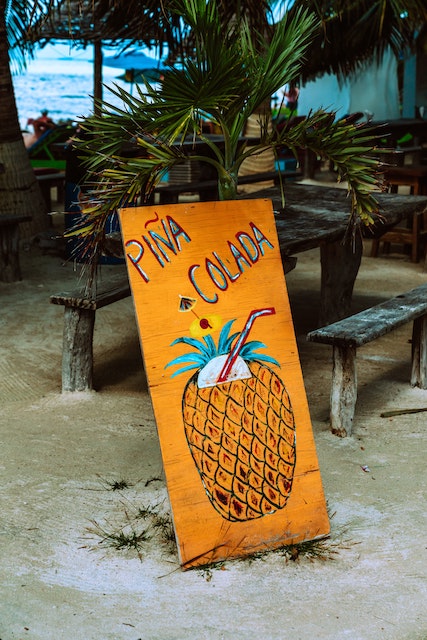 PIÑA
COLADA